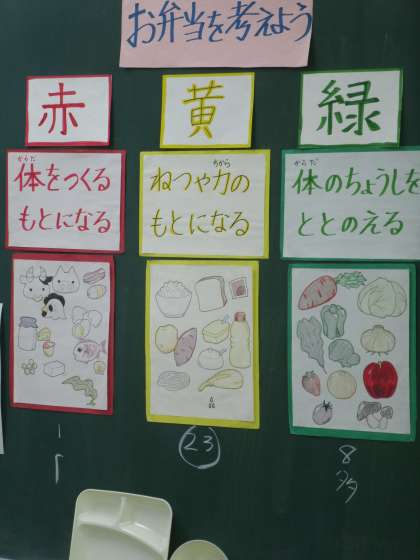 お弁当を考えよう
赤
黄
緑
からだ
体をつくる
もとになる
ちから
ねつや力の
もとになる
からだ
体のちょうしを
ととのえる
23
8